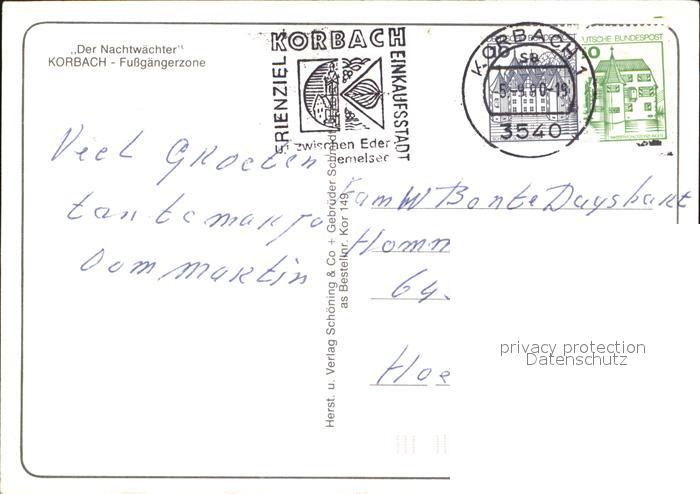 „Der Nachtwächter"
KORBACH - Fußgängerzone
KORBACH
FERIENZIEL
EINKAUFSSTADT
zwischen Eder
KORBACH 1
sb
3540
DEUTSCHE BUNDESPOST
Viel Groeten
tante marya
Oom Martin
Fam W Bonte Duyshart
Homm
64
Hoe
Herst. u. Verlag Schöning & Co + Gebrüder Schmidt
as Bestellnr. Kor 149
privacy protection
Datenschutz